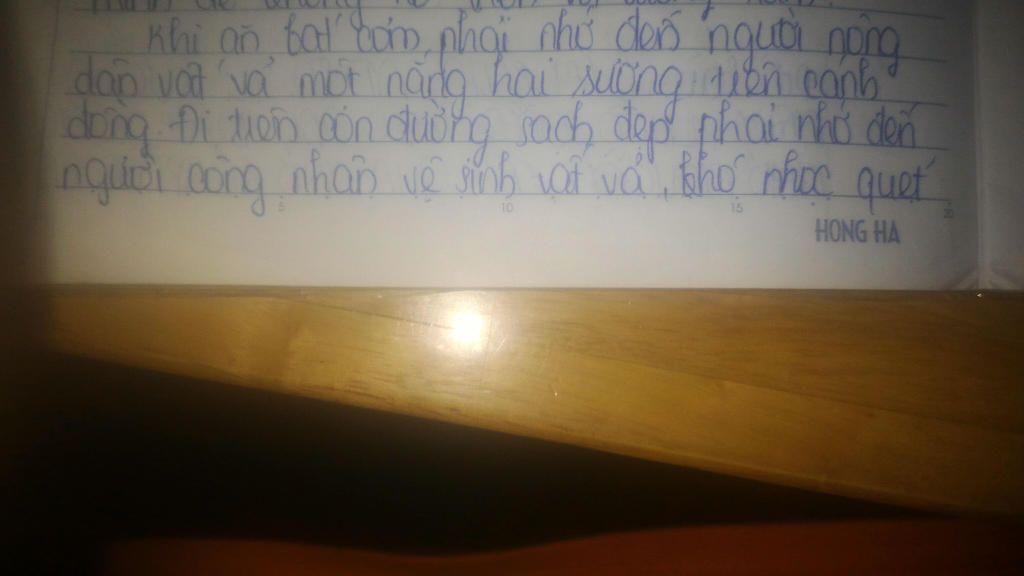 Khi ăn bát cơm, phải nhớ đến người nông
dân vất vả một nắng hai sương trên cánh
đồng. Đi trên con đường sạch đẹp phải nhớ đến
người công nhân vệ sinh vất vả, khó nhọc quét
5 10 15 20
HONG HA